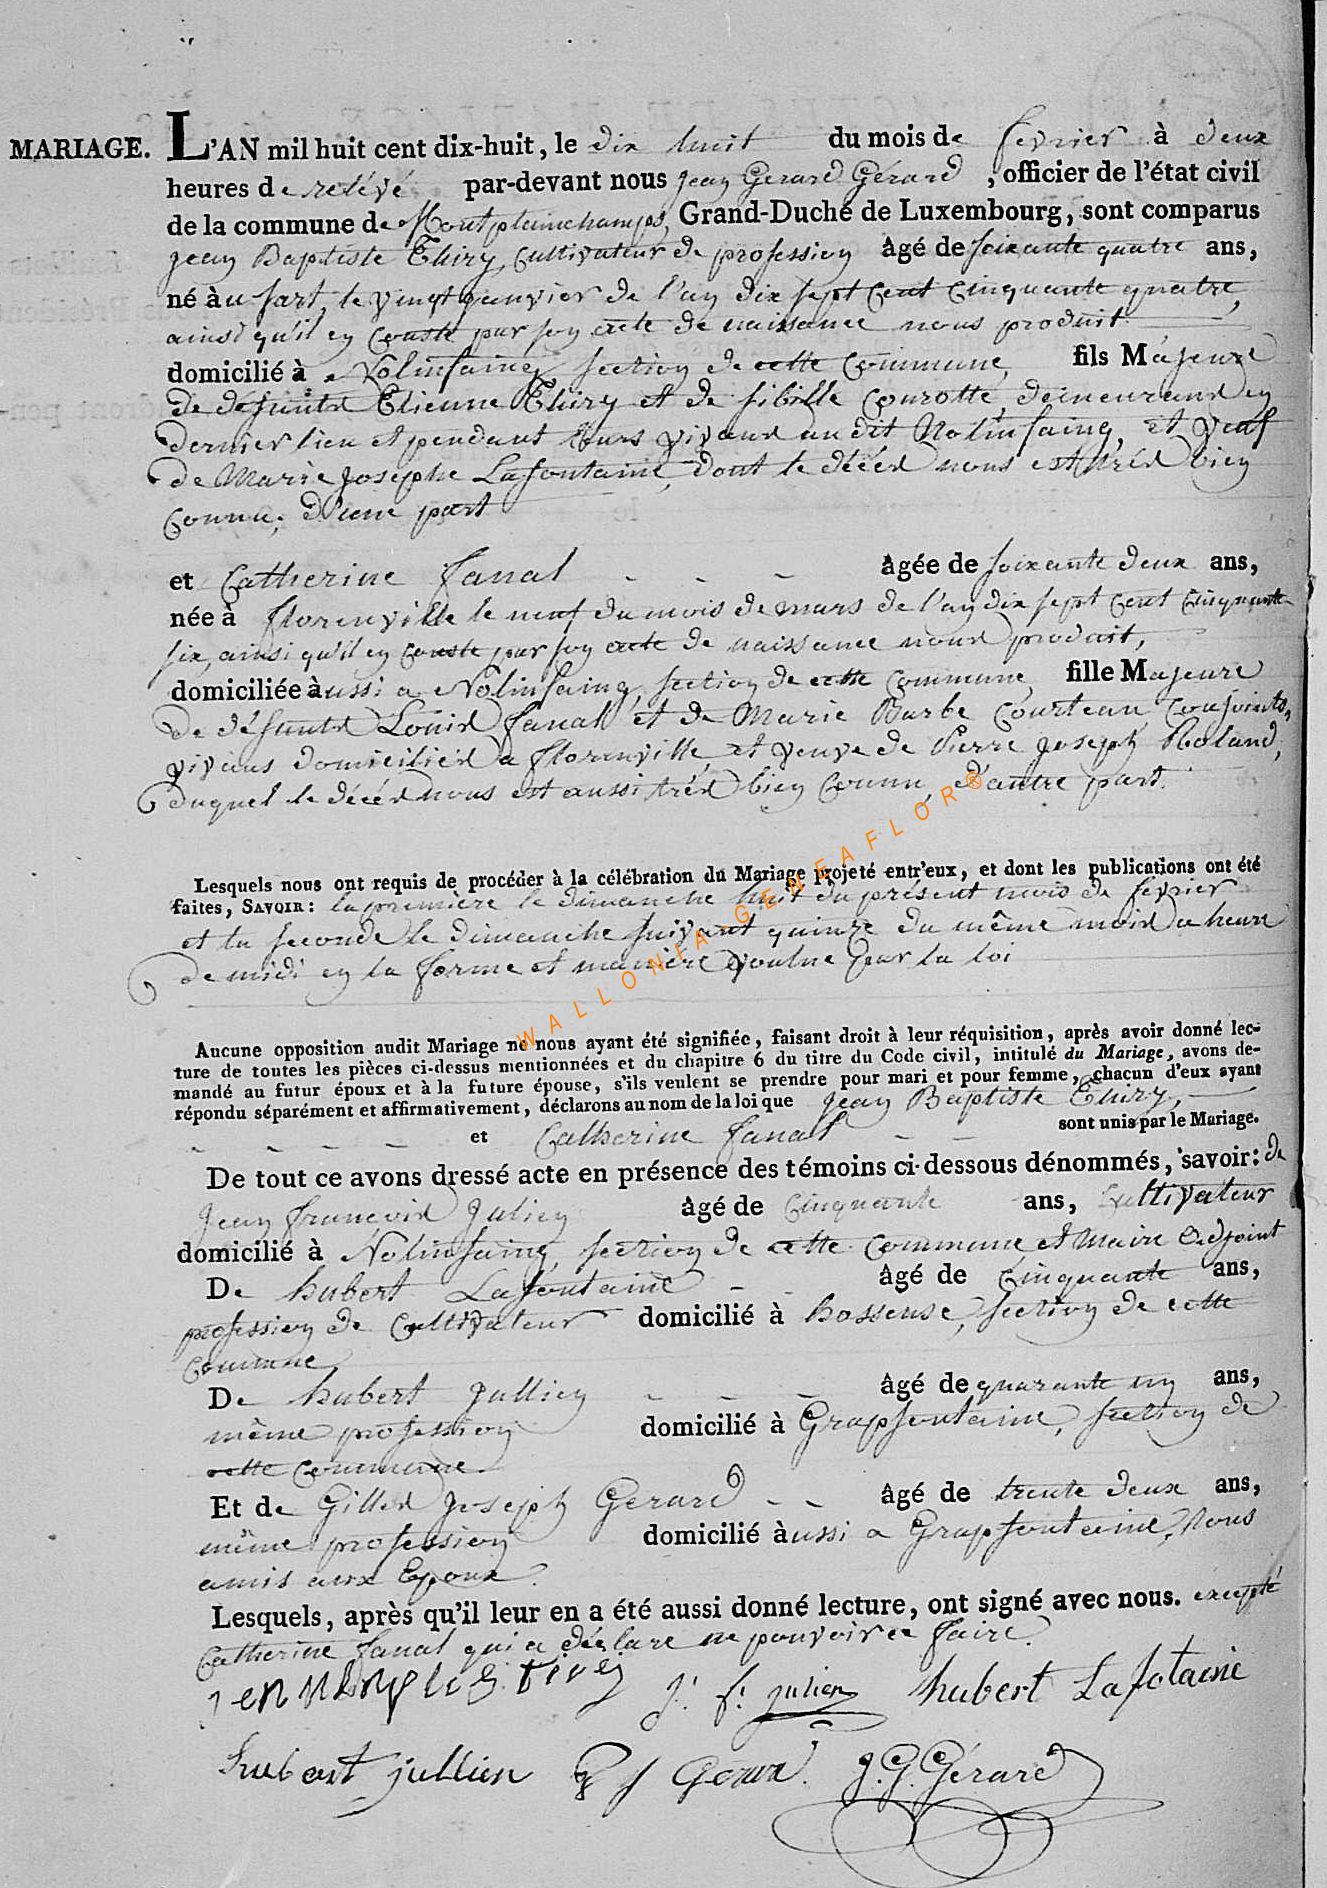 MARIAGE. L'AN mil huit cent dix-huit, le dix huit du mois de fevrier à deux
heures de relévé par-devant nous jean Gerard Gérard, officier de l'état civil
de la commune de Montplainchamps, Grand-Duché de Luxembourg, sont comparus
jean Baptiste Thiry, Cultivateur de profession âgé de soixante quatre ans,
né àu sart, le vingt janvier de l'an dix sept Cent Cinquante quatre,
ainsi qu'il en Conste par son acte de naissance nous produit
domicilié à Nolinfaing section de cette Commune, fils Majeure
de defunts Etienne Thiry et de sibille Courotte, demeurand en
dernier lieu et pendant leurs vivand au dit Nolinfaing, et veuf
de Marie josephe Lafontaine, dont le décéd nous est tréd bien
Connu, d'une part
et Catherine fanal - - - âgée de soixante deux ans,
née à florenville le neuf du mois de mars de l'an dix sept Cent Cinquante
six, ainsi qu'il en Conste par son acte de naissance nous produit,
domiciliée àussi a Nolinfaing, section de cette Commune, fille Majeure
de défunts Louis fanal et de Marie Barbe Courteau Conjoints,
vivans domiciliéd a florenville, et veuve de Pierre joseph Roland,
duquel le décéd nous est aussi tréd bien Connu, d'autre part.
Lesquels nous ont requis de procéder à la célébration du Mariage projeté entr'eux, et dont les publications ont été
faites, SAVOIR: la premiere le dimanche huit du présent mois de février
et la seconde le dimanche suivant quinze du même mois a heure
de midi en la forme et maniere voulue par la loi
WALLONIA-GENEAFLOR®
Aucune opposition audit Mariage ne nous ayant été signifiée, faisant droit à leur réquisition, après avoir donné lec-
ture de toutes les pièces ci-dessus mentionnées et du chapitre 6 du titre du Code civil, intitulé du Mariage, avons de-
mandé au futur époux et à la future épouse, s'ils veulent se prendre pour mari et pour femme, chacun d'eux ayant
répondu séparément et affirmativement, déclarons au nom de la loi que jean Baptiste Thiry,
- - - - et Catherine fanal - - sont unis par le Mariage.
De tout ce avons dressé acte en présence des témoins ci-dessous dénommés, savoir: de
jean francois julien âgé de Cinquante ans, Cultivateur
domicilié à Nolinfaing, section de cette Commune et Maire Adjoint
De hubert Lafontaine - - âgé de Cinquante ans,
profession de Cultivateur domicilié à hosseuse, section de cette
Commune,
De hubert jullien - - - âgé de quarante un ans,
même profession domicilié à Grapfontaine, section de
cette Commune.
Et de Gilles joseph Gerard - - âgé de trente deux ans,
même profession domicilié àussi a Grapfontaine, tous
amis aux Epoux.
Lesquels, après qu'il leur en a été aussi donné lecture, ont signé avec nous. excepté
Catherine fanal qui a déclaré ne pouvoir le faire.
j. f. julien hubert Lafotaine
hubert jullien g j Gerard. j. G. Gérard